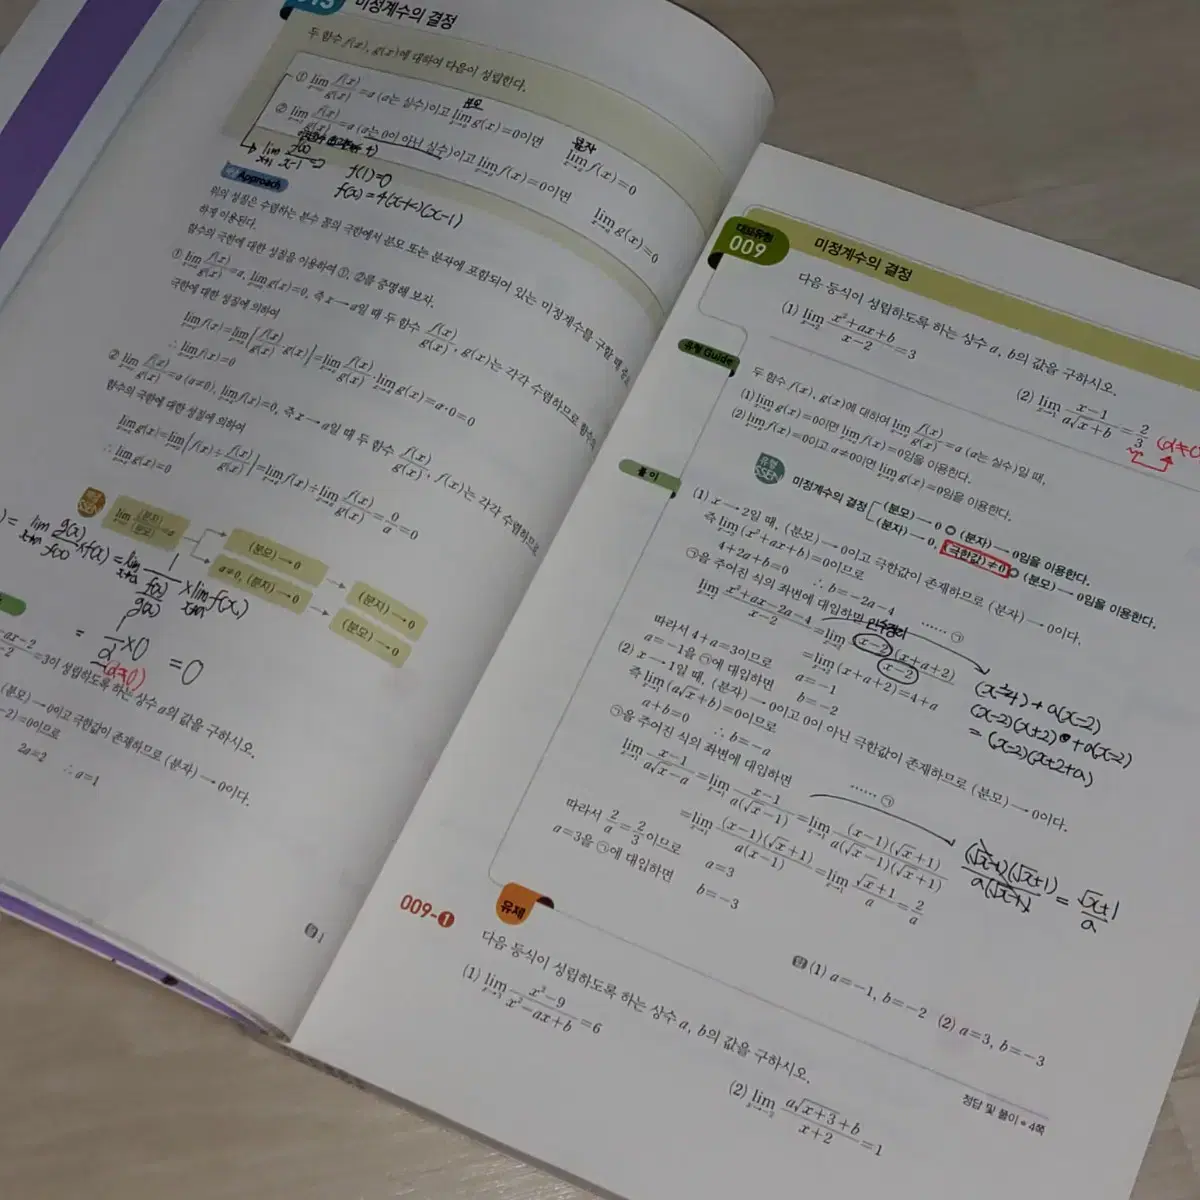 미정계수의 결정
두 함수 f(x), g(x)에 대하여 다음이 성립한다.
① lim f(x)/g(x)=a (a는 실수)이고 lim g(x)=0이면 lim f(x)=0
② lim f(x)/g(x)=a (a는 0이 아닌 실수)이고 lim f(x)=0이면 lim g(x)=0
분모
분자
f(1)=0
Approach
위의 성질은 수렴하는 분수 꼴의 극한에서 분모 또는 분자에 포함되어 있는 미정계수를 구할 때
하게 이용된다.
함수의 극한에 대한 성질을 이용하여 ①, ②를 증명해 보자.
① lim f(x)/g(x)=a, lim g(x)=0, 즉 x→a일 때 두 함수 f(x)/g(x), g(x)는 각각 수렴하므로 함수의
극한에 대한 성질에 의하여
lim f(x)=lim{f(x)/g(x)·g(x)}=lim f(x)/g(x)·lim g(x)=a·0=0
∴ lim f(x)=0
② lim f(x)/g(x)=a (a≠0), lim f(x)=0, 즉 x→a일 때 두 함수 f(x)/g(x), f(x)는 각각 수렴하므로
함수의 극한에 대한 성질에 의하여
lim g(x)=lim{f(x)÷f(x)/g(x)}=lim f(x)÷lim f(x)/g(x)=0/a=0
∴ lim g(x)=0
lim (분자)/(분모)=a
(분모)→0
(분자)→0
a≠0, (분자)→0
(분모)→0
= lim g(x)/f(x) × f(x) = lim 1/(f(x)/g(x)) × lim f(x)
= 1/a × 0 = 0
(a≠0)
=3이 성립하도록 하는 상수 a의 값을 구하시오.
(분모)→0이고 극한값이 존재하므로 (분자)→0이다.
-2)=0이므로
2a=2 ∴ a=1
답 1
대표유형
009
미정계수의 결정
다음 등식이 성립하도록 하는 상수 a, b의 값을 구하시오.
(1) lim x²+ax+b/x-2=3
(2) lim x-1/a√x+b=2/3
(a≠0)
유형 Guide
두 함수 f(x), g(x)에 대하여 lim f(x)/g(x)=a (a는 실수)일 때,
(1) lim g(x)=0이면 lim f(x)=0임을 이용한다.
(2) lim f(x)=0이고 a≠0이면 lim g(x)=0임을 이용한다.
유형
SSEN
미정계수의 결정
(분모)→0 ○ (분자)→0임을 이용한다.
(분자)→0, (극한값)≠0 ○ (분모)→0임을 이용한다.
풀이
(1) x→2일 때, (분모)→0이고 극한값이 존재하므로 (분자)→0이다.
즉 lim(x²+ax+b)=0이므로
4+2a+b=0 ∴ b=-2a-4 …… ㉠
㉠을 주어진 식의 좌변에 대입하면
인수정리
lim x²+ax-2a-4/x-2=lim (x-2)(x+a+2)/x-2
=lim(x+a+2)=4+a
따라서 4+a=3이므로 a=-1
a=-1을 ㉠에 대입하면 b=-2
(x²-4)+a(x-2)
(x-2)(x+2)+a(x-2)
=(x-2)(x+2+a)
(2) x→1일 때, (분자)→0이고 0이 아닌 극한값이 존재하므로 (분모)→0이다.
즉 lim(a√x+b)=0이므로
a+b=0 ∴ b=-a …… ㉠
㉠을 주어진 식의 좌변에 대입하면
lim x-1/a√x-a=lim x-1/a(√x-1)=lim (x-1)(√x+1)/a(√x-1)(√x+1)
=lim (x-1)(√x+1)/a(x-1)=lim √x+1/a=2/a
(√x-1)(√x+1)/a(√x-1)=√x+1/a
따라서 2/a=2/3이므로 a=3
a=3을 ㉠에 대입하면 b=-3
답 (1) a=-1, b=-2 (2) a=3, b=-3
009-1
유제
다음 등식이 성립하도록 하는 상수 a, b의 값을 구하시오.
(1) lim x²-9/x²-ax+b=6
(2) lim a√x+3+b/x+2=1
정답 및 풀이 • 4쪽